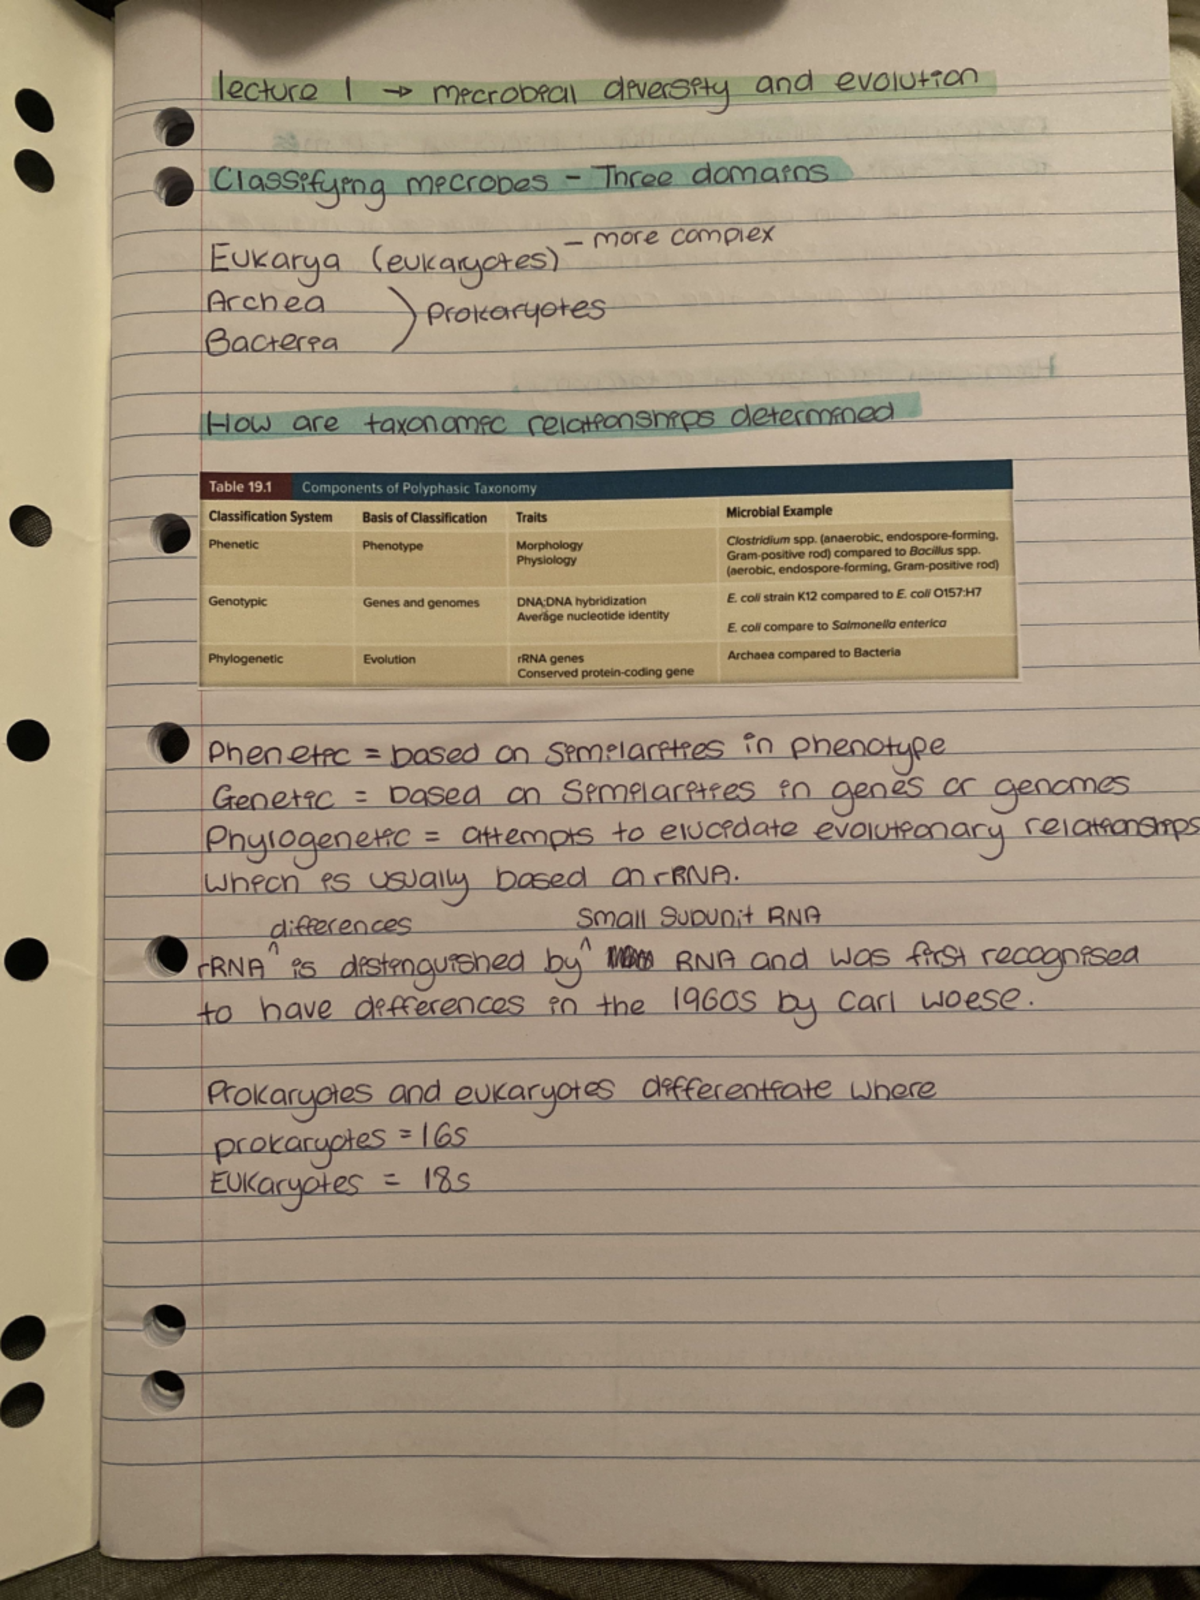 lecture 1 → microbial diversity and evolution
Classifying microbes - Three domains
Eukarya (eukaryotes) - more complex
Archea
Bacteria
) Prokaryotes
How are taxonomic relationships determined
Table 19.1 Components of Polyphasic Taxonomy
Classification System Basis of Classification Traits Microbial Example
Phenetic Phenotype Morphology
Physiology
Clostridium spp. (anaerobic, endospore-forming,
Gram-positive rod) compared to Bacillus spp.
(aerobic, endospore-forming, Gram-positive rod)
Genotypic Genes and genomes DNA:DNA hybridization
Average nucleotide identity
E. coli strain K12 compared to E. coli O157:H7
E. coli compare to Salmonella enterica
Phylogenetic Evolution rRNA genes
Conserved protein-coding gene
Archaea compared to Bacteria
Phenetic = based on similarities in phenotype
Genetic = based on similarities in genes or genomes
Phylogenetic = attempts to elucidate evolutionary relationships
which is usually based on rRNA.
differences small subunit RNA
rRNA ^ is distinguished by ^ RNA and was first recognised
to have differences in the 1960s by Carl Woese.
Prokaryotes and eukaryotes differentiate where
prokaryotes = 16s
Eukaryotes = 18s